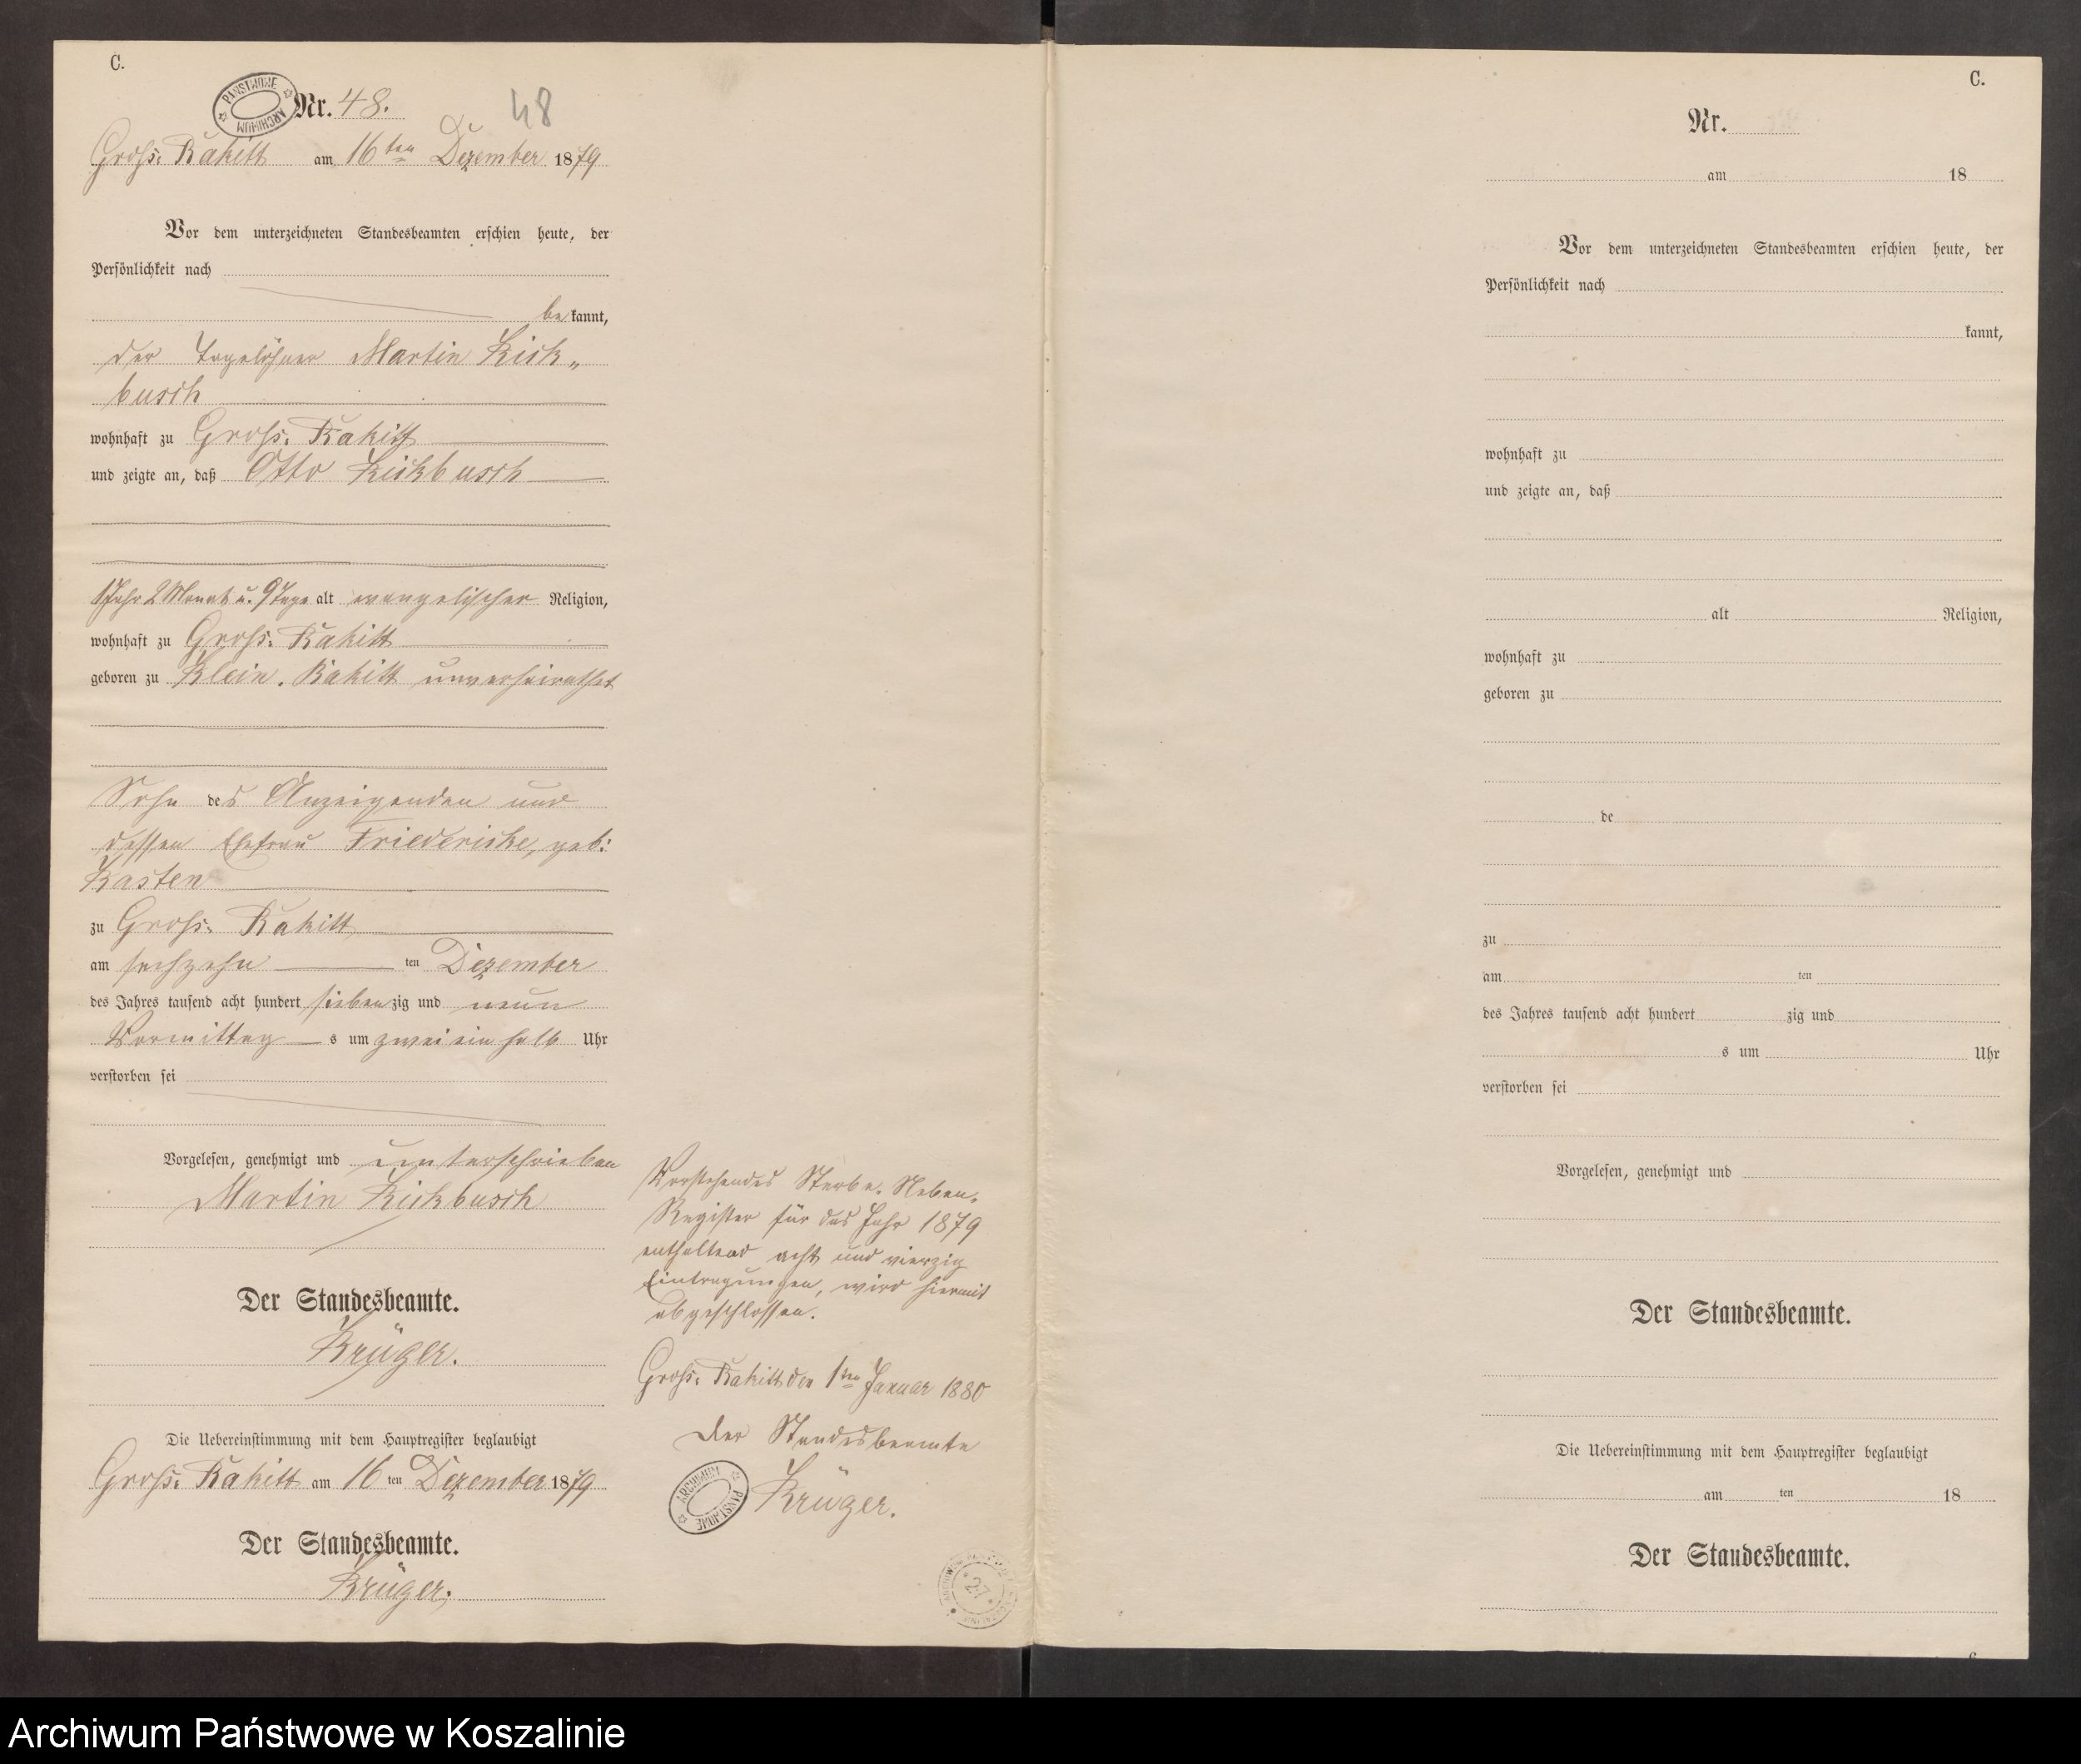 C.
PAŃSTWOWE ARCHIWUM
Nr. 48.
48
Groß: Rakitt am 16ten Dezember 1879
Vor dem unterzeichneten Standesbeamten erschien heute, der
Persönlichkeit nach
be kannt,
der Tagelöhner Martin Kick„
busch
wohnhaft zu Groß: Rakitt
und zeigte an, daß Otto Kickbusch
1 Jahr 2 Monat u. 9 Tage alt evangelischer Religion,
wohnhaft zu Groß: Rakitt
geboren zu Klein. Rakitt unverheirathet
Sohn des Anzeigenden und
dessen Ehefrau Friedericke, geb:
Kasten
zu Groß: Rakitt
am sechzehn ten Dezember
des Jahres tausend acht hundert sieben zig und neun
Vormittag s um zwei ein halb Uhr
verstorben sei
Vorgelesen, genehmigt und unterschrieben
Martin Kickbusch
Der Standesbeamte.
Krüger.
Die Uebereinstimmung mit dem Hauptregister beglaubigt
Groß: Rakitt am 16 ten Dezember 1879
Der Standesbeamte.
Krüger.
Vorstehendes Sterbe. Neben.
Register für das Jahr 1879
enthaltend acht und vierzig
Eintragungen, wird hiermit
abgeschlossen.
Groß: Rakitt den 1ten Januar 1880
Der Standesbeamte
Krüger.
ARCHIWUM PAŃSTWOWE
27
C.
Nr.
am 18
Vor dem unterzeichneten Standesbeamten erschien heute, der
Persönlichkeit nach
kannt,
wohnhaft zu
und zeigte an, daß
alt Religion,
wohnhaft zu
geboren zu
de
zu
am ten
des Jahres tausend acht hundert zig und
s um Uhr
verstorben sei
Vorgelesen, genehmigt und
Der Standesbeamte.
Die Uebereinstimmung mit dem Hauptregister beglaubigt
am ten 18
Der Standesbeamte.
Archiwum Państwowe w Koszalinie